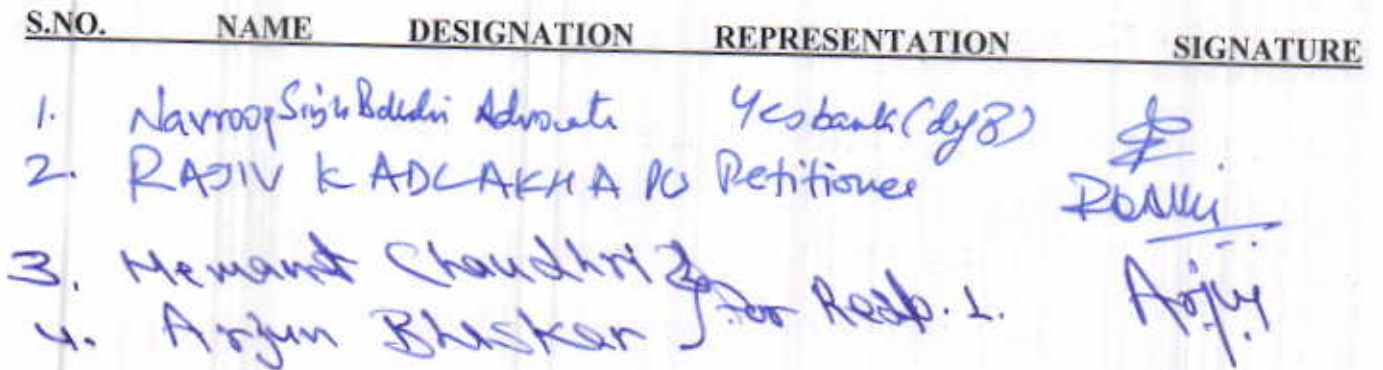 S.NO. NAME DESIGNATION REPRESENTATION SIGNATURE
1. Navroop Singh Advocate Yes bank
2. RAJIV K ADLAKHA Petitioner
3. Hemant Chaudhri
4. Arjun Bhaskar } For Resp. 1. Arjun